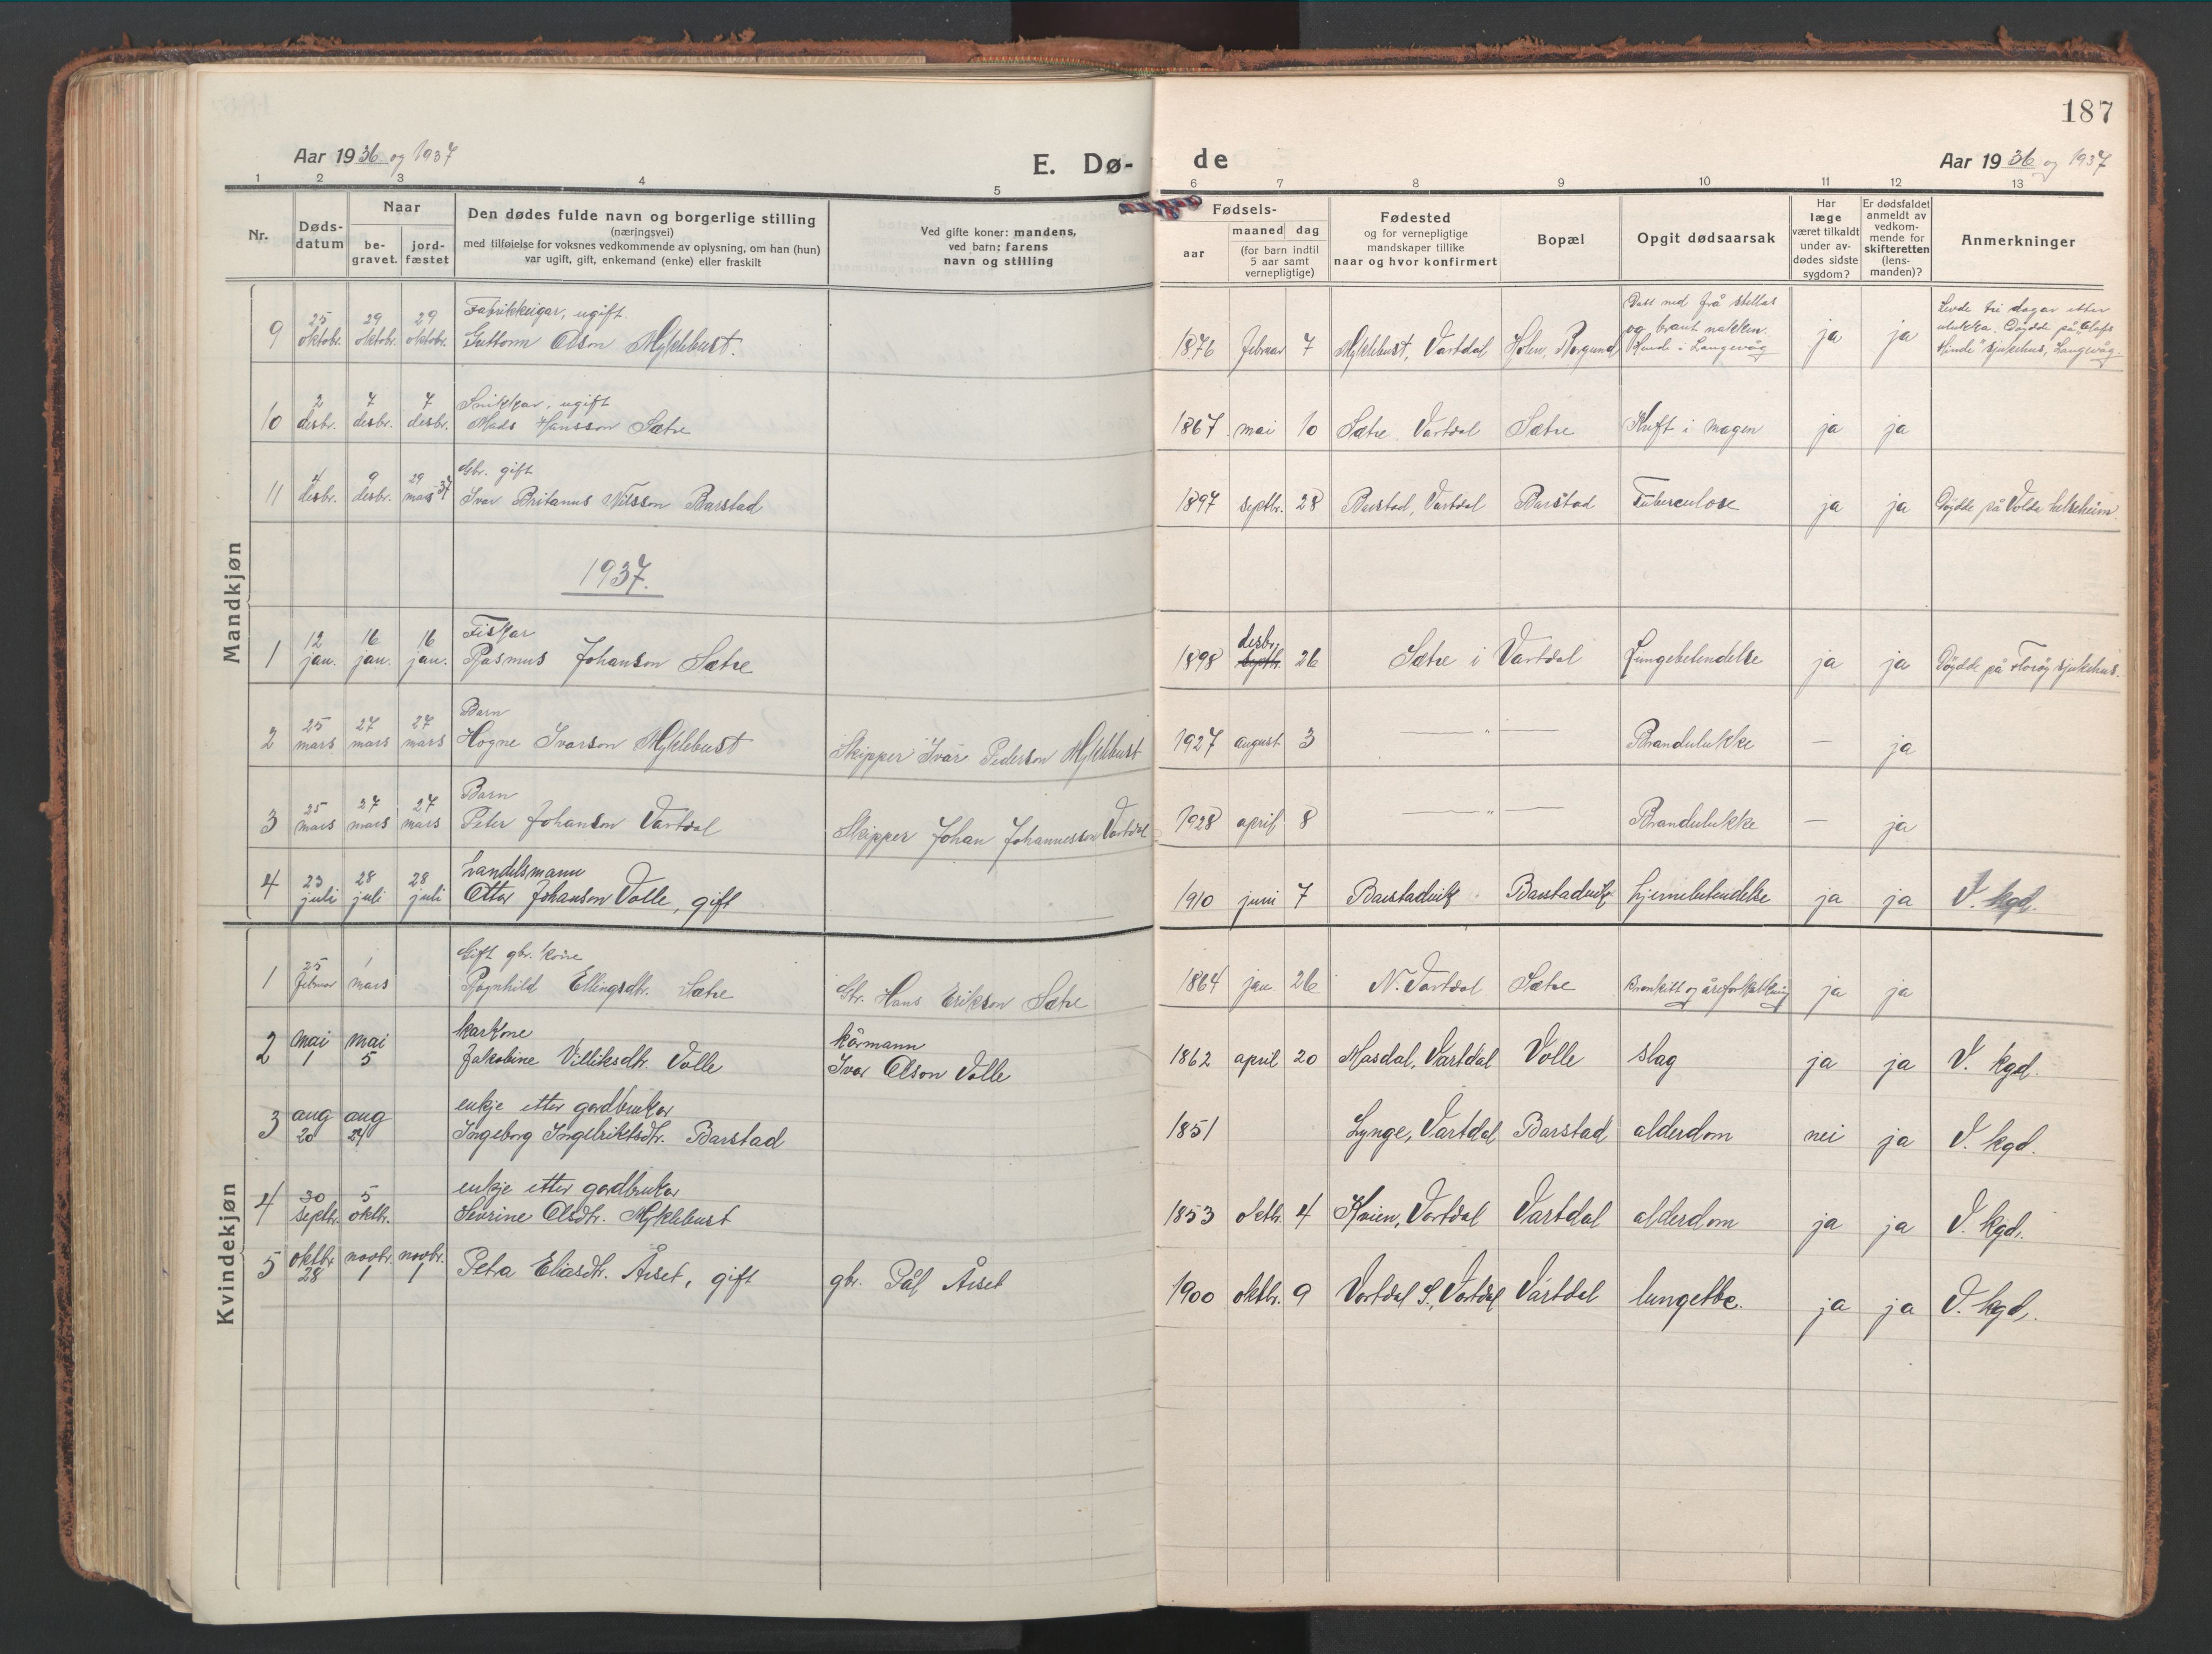 187
Aar 1936 og 1937
E. Dø-
de
Aar 1936 og 1937
1 2 3 4 5 6 7 8 9 10 11 12 13
Nr.
Døds-
datum
Naar
be-
gravet.
jord-
fæstet
Den dødes fulde navn og borgerlige stilling
(næringsvei)
med tilføielse for voksnes vedkommende av oplysning, om han (hun)
var ugift, gift, enkemand (enke) eller fraskilt
Ved gifte koner: mandens,
ved barn: farens
navn og stilling
Fødsels-
aar
maaned dag
(for barn indtil
5 aar samt
vernepligtige)
Fødested
og for vernepligtige
mandskaper tillike
naar og hvor konfirmert
Bopæl
Opgit dødsaarsak
Har
læge
været tilkaldt
under av-
dødes sidste
sygdom?
Er dødsfaldet
anmeldt av
vedkom-
mende for
skifteretten
(lens-
manden)?
Anmerkninger
Mandkjøn
9
25
oktobr.
29
oktobr.
29
oktobr.
Fabrikkeigar, ugift.
Guttorm Olson Myklebust.
1876 februar 7
Myklebust, Vartdal
Holen, Borgund
Datt ned frå stellas
og braut nakken.
Hende i Langevåg
ja
ja
Levde tri dagar etter
ulukka. Døydde på "Olafs
Minde" sjukehus, Langevåg.
10
2
desbr.
7
desbr.
7
desbr.
Snikkar, ugift
Mads Hansson Sætre
1867 mai 10
Sætre Vartdal
Sætre
Kreft i magen
ja
ja
11
4
desbr.
9
desbr.
29
mars 37
Gbr. gift
Ivar Britanus Nilsson Barstad
1897 septbr. 28
Barstad, Vartdal
Barstad
Tuberculose
ja
ja
Døydde på Volda helseheim.
1937.
1
12
jan.
16
jan.
16
jan.
Fiskar
Rasmus Johanson Sætre
1898
desbr.
septbr.
26
Sætre i Vartdal
Lungebetendelse
ja
ja
Døydde på Florøy sjukehus.
2
25
mars
27
mars
27
mars
Barn
Hogne Ivarson Myklebust
Skipper Ivar Pederson Myklebust
1927 august 3
— " —
Brandulukke
—
ja
3
25
mars
27
mars
27
mars
Barn
Peter Johanson Vartdal
Skipper Johan Johannesson Vartdal
1928 april 8
— " —
Brandulukke
—
ja
4
23
juli
28
juli
28
juli
handelsmann
Ottar Johanson Volle, gift
1910 juni 7
Barstadvik
Barstadvik
hjernebetendelse
ja
ja
V. kgd.
Kvindekjøn
1
25
februar
1
mars
Gift gbr. kone
Ragnhild Ellingsdtr. Sætre
Gbr. Hans Erikson Sætre
1864 jan 26
N. Vartdal
Sætre
bronkitt og åreforkalkning
ja
ja
2
mai
1
mai
5
kårkone
Jakobine Villiksdtr. Volle
kårmann
Ivar Olson Volle
1862 april 20
Masdal, Vartdal
Volle
slag
ja
ja
V. kgd.
3
aug
20
aug
24
enkje etter gardbrukar
Ingeborg Ingebriktsdtr. Barstad
1851
Lynge, Vartdal
Barstad
alderdom
nei
ja
V. kgd.
4
30
septbr.
5
oktbr.
enkje etter gardbrukar
Sevrine Olsdtr. Myklebust
1853 oktbr. 4
Kvien, Vartdal
Vartdal
alderdom
ja
ja
V. kgd.
5
oktbr
28
novbr.
1
novbr.
1
Petra Eliasdtr. Årset, gift
gbr. Pål Årset
1900 oktbr. 9
Vartdal S., Vartdal
Vartdal
lungetbc.
ja
ja
V. kgd.